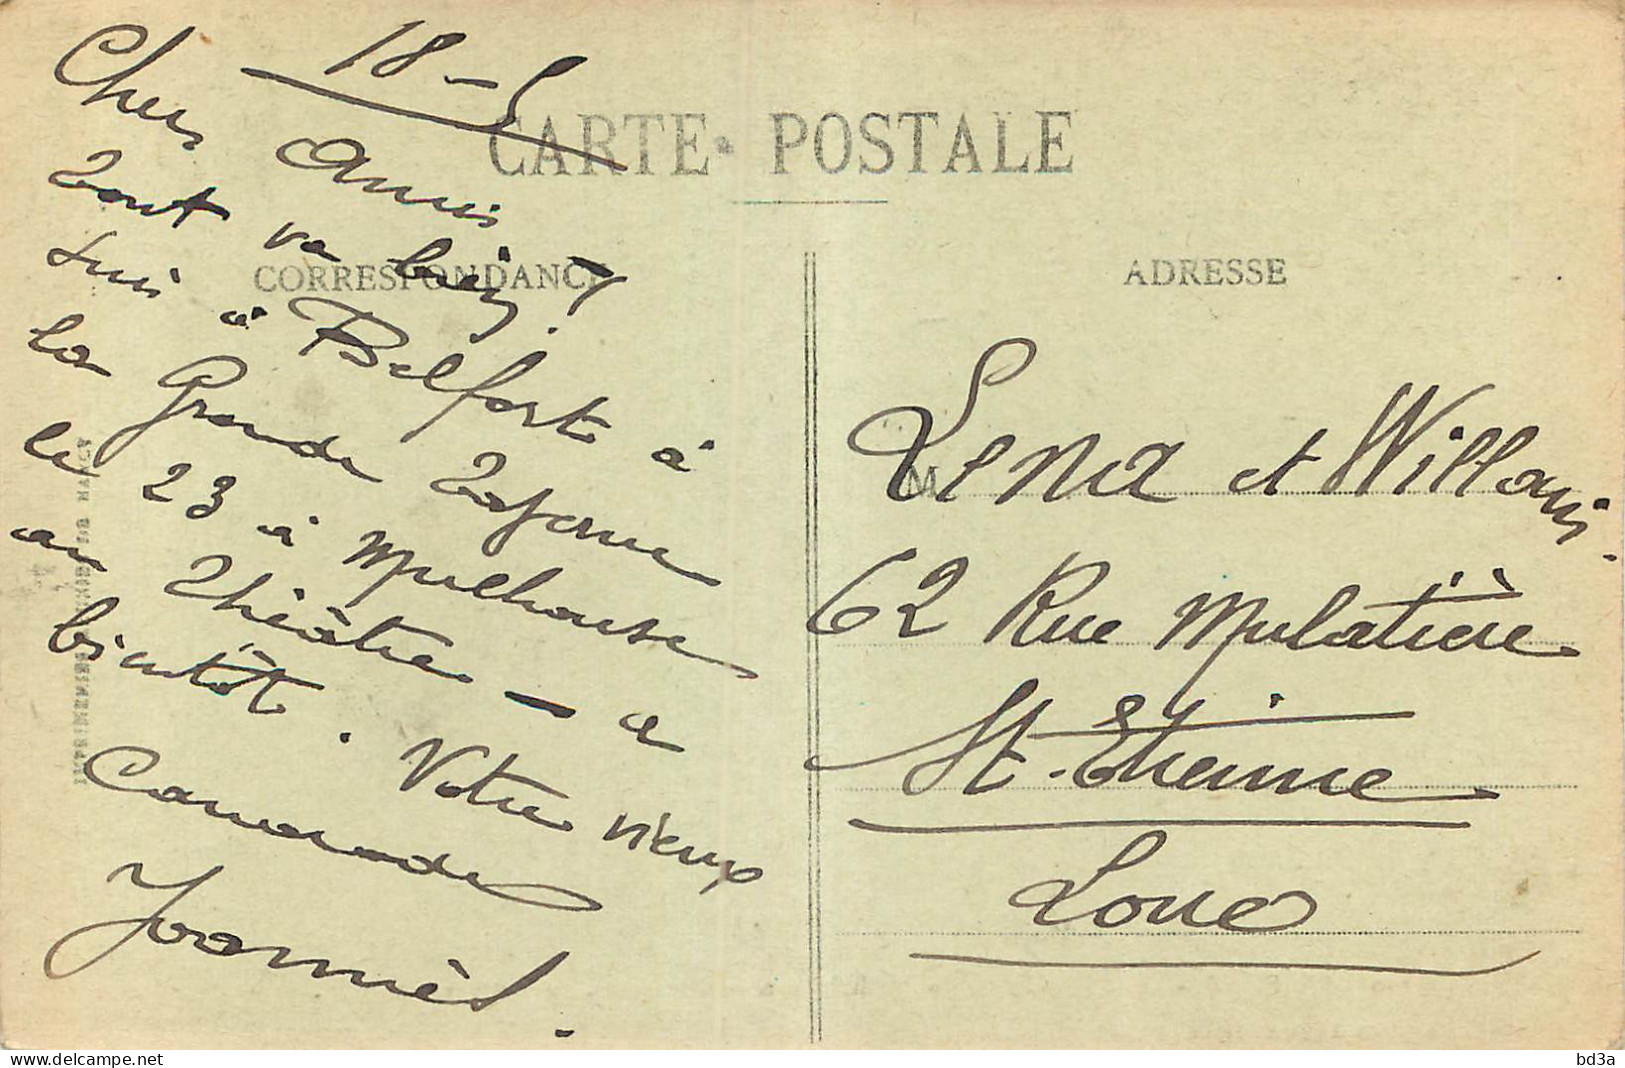 18-5
CARTE POSTALE
CORRESPONDANCE
Chers Amis
Tout va bien !
suis à Belfort à
la Grande Taverne
le 23 à Mulhouse
au Théâtre - a
bientôt. Votre vieux
Camarade
ADRESSE
M
Lena et Willars.
62 Rue Mulatière
St. Etienne
Loire
delcampe.net
bd3a